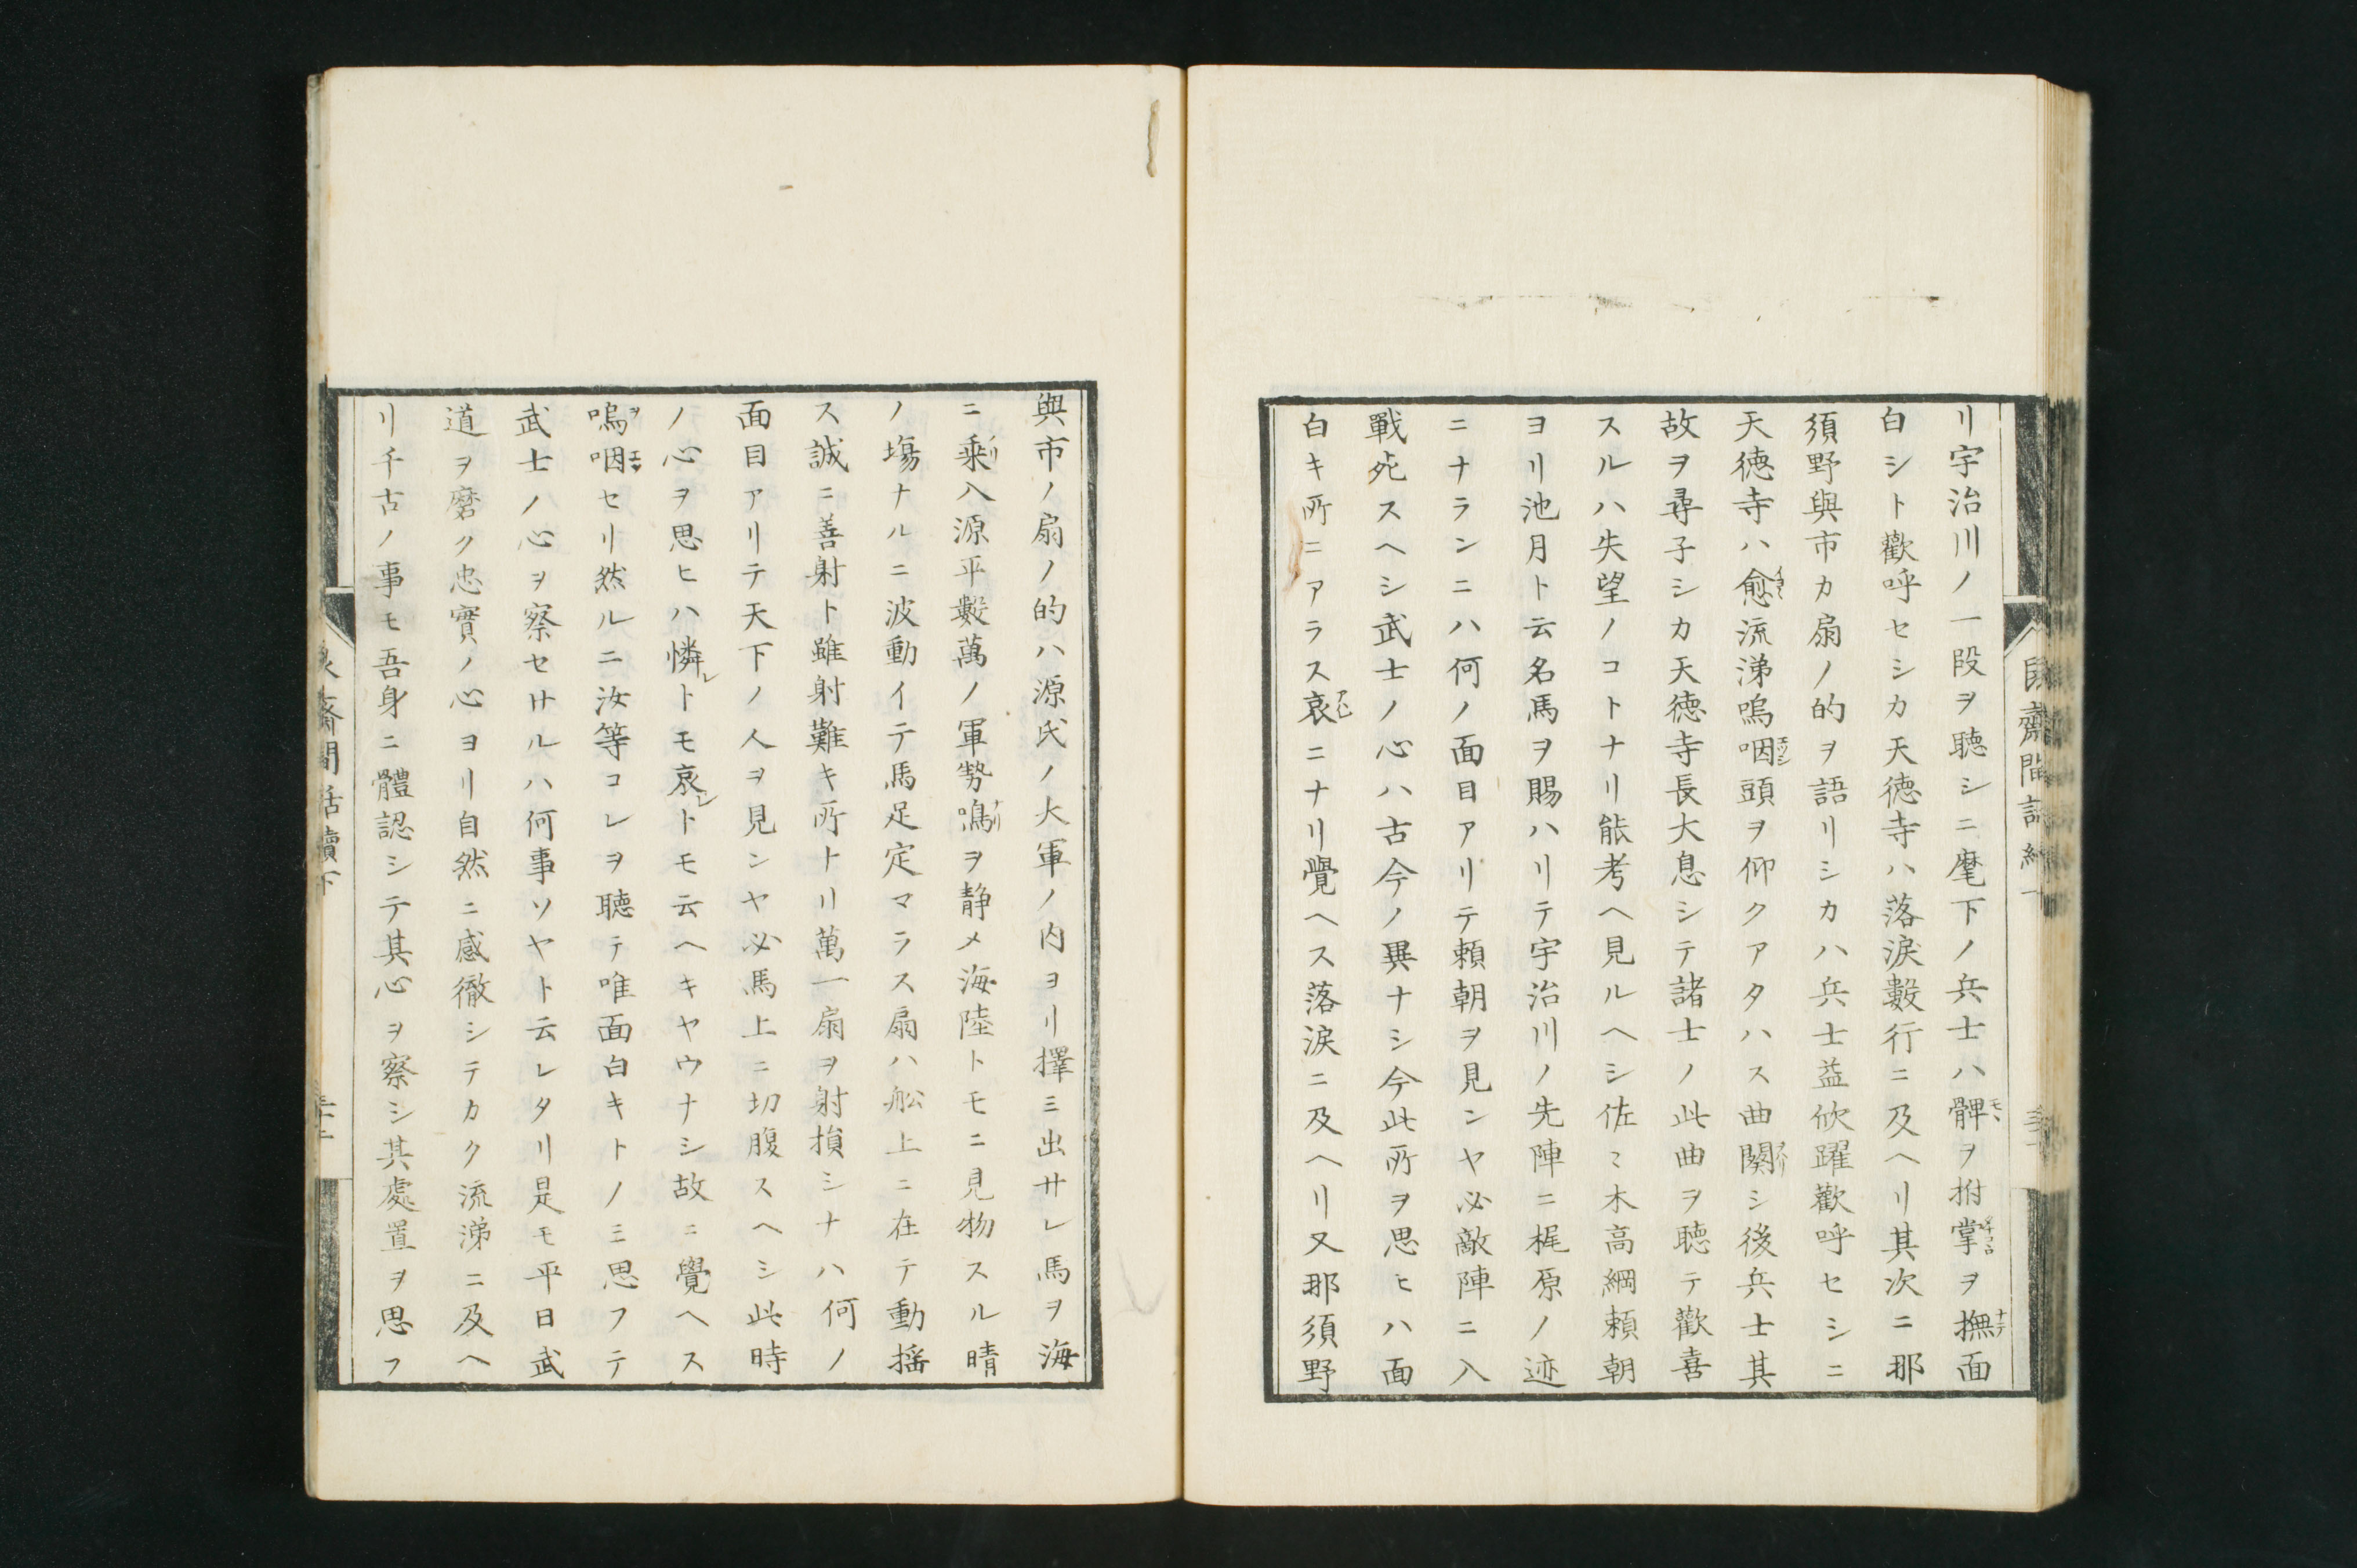 リ宇治川ノ一段ヲ聴シニ麾下ノ兵士ハ髀ヲ拊掌ヲ撫面
白シト歡呼セシカ天徳寺ハ落涙數行ニ及ヘリ其次ニ那
須野與市カ扇ノ的ヲ語リシカハ兵士益欣躍歡呼セシニ
天徳寺ハ愈流涕嗚咽頭ヲ仰クアタハス曲闋シ後兵士其
故ヲ尋子シカ天徳寺長大息シテ諸士ノ此曲ヲ聴テ歡喜
スルハ失望ノコトナリ能考ヘ見ルヘシ佐〻木高綱頼朝
ヨリ池月ト云名馬ヲ賜ハリテ宇治川ノ先陣ニ梶原ノ迹
ニナランニハ何ノ面目アリテ頼朝ヲ見ンヤ必敵陣ニ入
戰死スヘシ武士ノ心ハ古今ノ異ナシ今此所ヲ思ヒハ面
白キ所ニアラス哀ニナリ覺ヘス落涙ニ及ヘリ又那須野
與市ノ扇ノ的ハ源氏ノ大軍ノ内ヨリ擇ミ出サレ馬ヲ海
ニ乗入源平數萬ノ軍勢鳴ヲ静メ海陸トモニ見物スル晴
ノ塲ナルニ波動イテ馬足定マラス扇ハ舩上ニ在テ動揺
ス誠ニ善射ト雖射難キ所トリ萬一扇ヲ射損シナハ何ノ
面目アリテ天下ノ人ヲ見ンヤ必馬上ニ切腹スヘシ此時
ノ心ヲ思ヒハ憐レトモ哀レトモ云ヘキヤウナシ故ニ覺ヘス
嗚咽セリ然ルニ汝等コレヲ聴テ唯面白キトノミ思フテ
武士ノ心ヲ察セサルハ何事ソヤト云レタリ是モ平日武
道ヲ磨ク忠實ノ心ヨリ自然ニ感徹シテカク流涕ニ及ヘ
リ千古ノ事モ吾身ニ體認シテ其心ヲ察シ其處置ヲ思フ